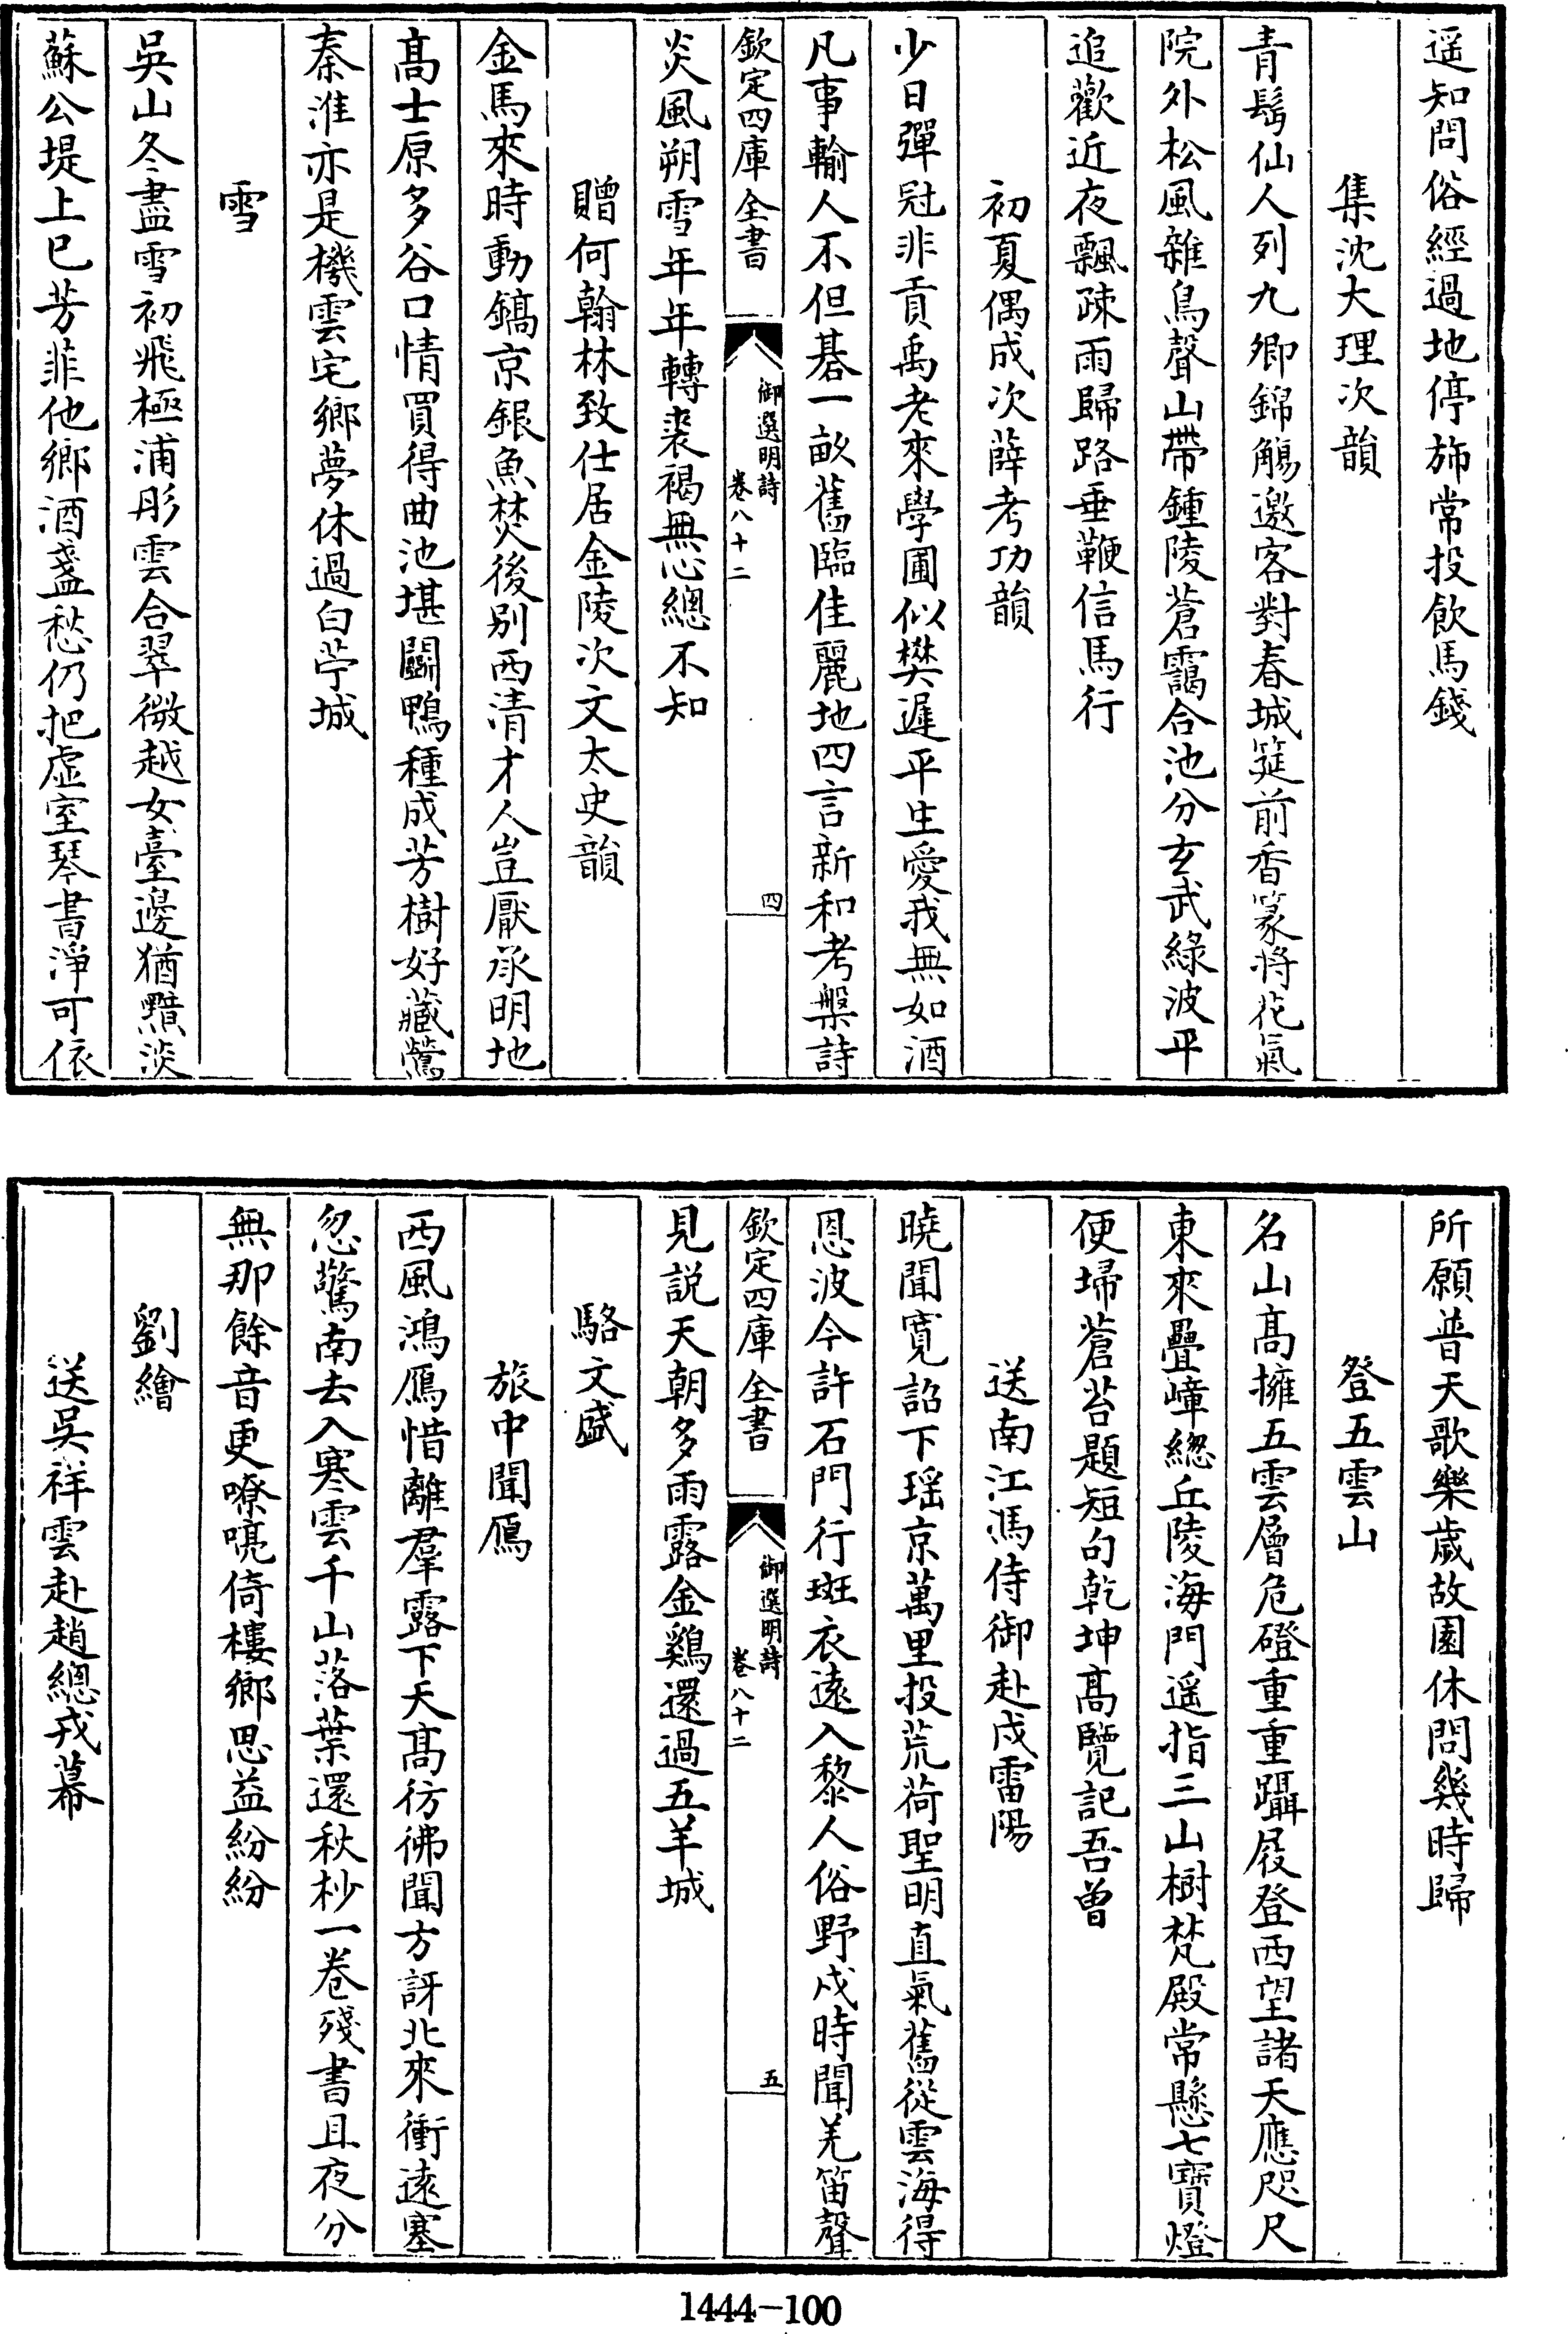 遥知問俗經過地停斾常投飲馬錢
集沈大理次韻
青髩仙人列九卿錦觴邀客對春城筵前香篆將花氣
院外松風雜鳥聲山帶鍾陵蒼靄合池分玄武緑波平
追歡近夜飄疎雨歸路垂鞭信馬行
初夏偶成次薛考功韻
少日彈冠非貢禹老來學圃似樊遲平生愛我無如酒
凡事輸人不但碁一畝舊臨佳麗地四言新和考槃詩
欽定四庫全書
御選明詩
卷八十二
四
炎風朔雪年年轉裘褐無心總不知
贈何翰林致仕居金陵次文太史韻
金馬來時動鎬京銀魚焚後别西清才人豈厭承明地
髙士原多谷口情買得曲池堪鬬鴨種成芳樹好藏鶯
秦淮亦是機雲宅鄉夢休過白苧城
雪
吳山冬盡雪初飛極浦彤雲合翠微越女臺邊猶黯淡
蘇公堤上已芳菲他鄉酒盞愁仍把虚室琴書淨可依
所願普天歌樂歲故園休問幾時歸
登五雲山
名山髙擁五雲層危磴重重躡屐登西望諸天應咫尺
東來疊嶂總丘陵海門遥指三山樹梵殿常懸七寶燈
便埽蒼苔題短句乾坤髙覽記吾曾
送南江馮侍御赴戍雷陽
曉聞寛詔下瑶京萬里投荒荷聖明直氣舊從雲海得
恩波今許石門行斑衣遠入黎人俗野戍時聞羌笛聲
欽定四庫全書
御選明詩
卷八十二
五
見説天朝多雨露金鷄還過五羊城
駱文盛
旅中聞鴈
西風鴻鴈惜離羣露下天髙彷彿聞方訝北來衝遠塞
忽驚南去入寒雲千山落葉還秋杪一卷殘書且夜分
無那餘音更嘹喨倚樓鄉思益紛紛
劉繪
送吳祥雲赴趙總戎幕
1444-100